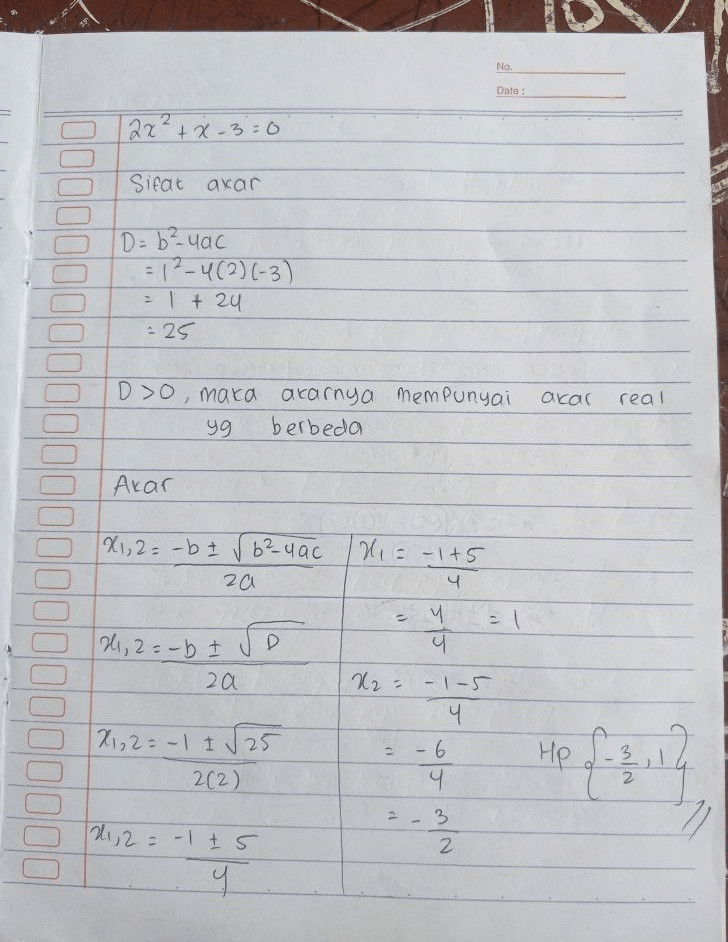 No.
Date :
2x² + x - 3 = 0
Sifat akar
D = b² - 4ac
= 1² - 4(2)(-3)
= 1 + 24
= 25
D > 0, maka akarnya mempunyai akar real
yg berbeda
Akar
x1,2 = -b ± √b² - 4ac / 2a
x1,2 = -b ± √D / 2a
x1,2 = -1 ± √25 / 2(2)
x1,2 = -1 ± 5 / 4
x1 = -1 + 5 / 4
= 4/4 = 1
x2 = -1 - 5 / 4
= -6/4
= -3/2
Hp {-3/2, 1}